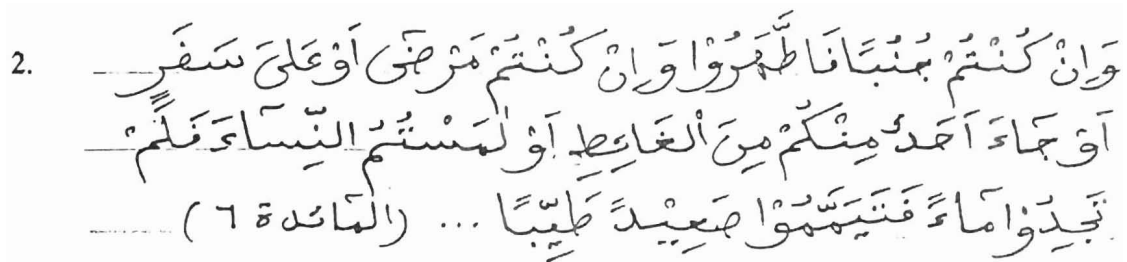 2. وَاِنْ كُنْتُمْ جُنُبًا فَا طَّهَّرُوْا وَاِنْ كُنْتُمْ مَرْضَى اَوْ عَلَى سَفَرٍ
اَوْ جَاءَ اَحَدٌ مِنْكُمْ مِنَ الْغَائِطِ اَوْ لٰمَسْتُمُ النِّسَاءَ فَلَمْ
تَجِدُوْا مَاءً فَتَيَمَّمُوْا صَعِيْدً طَيِّبًا ... (المَائدة ٦)